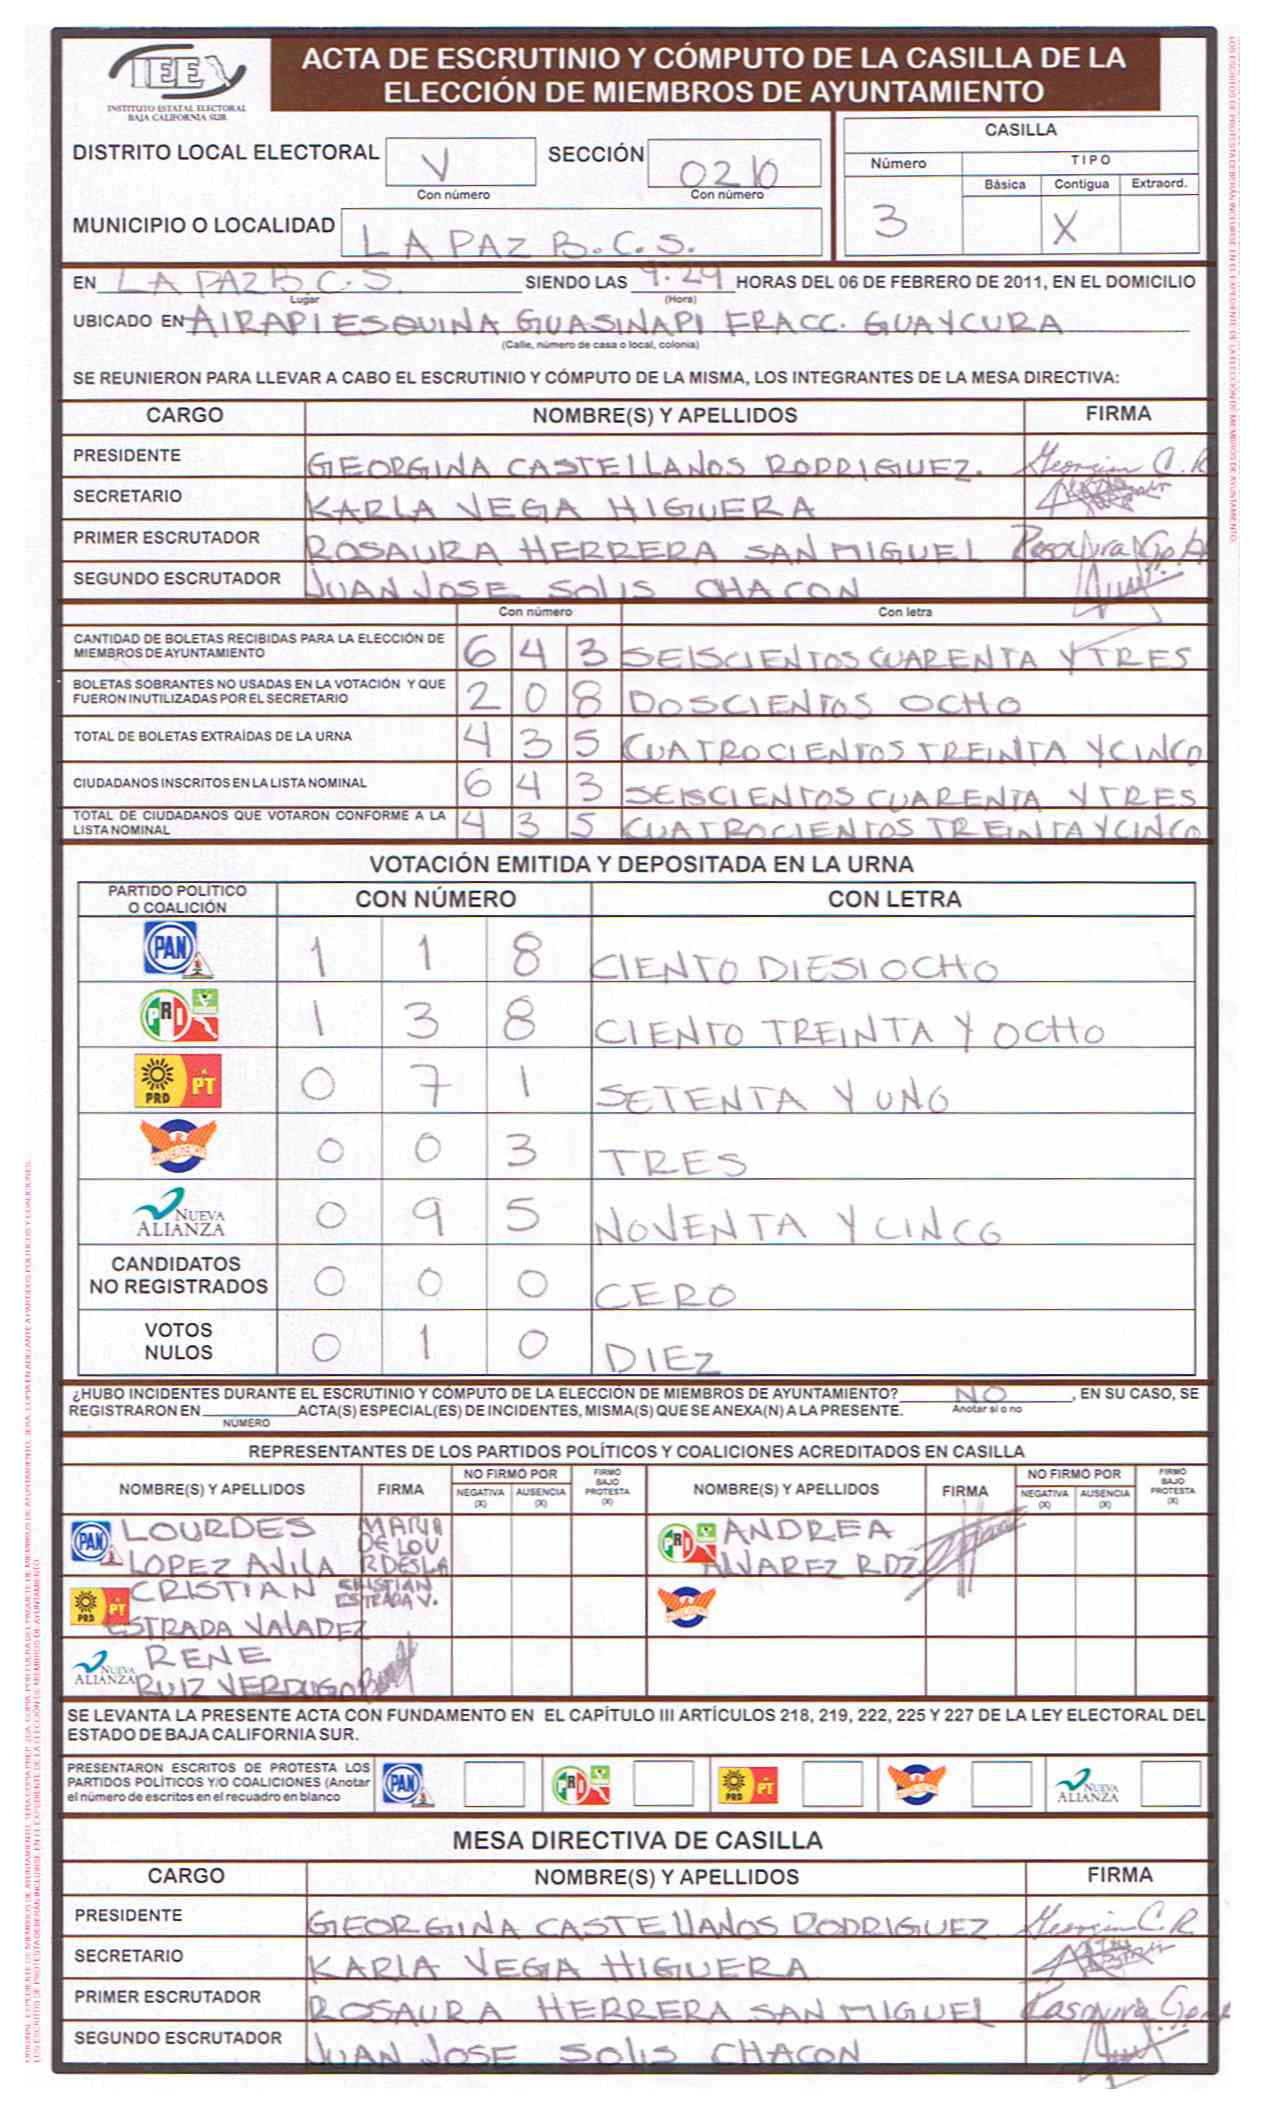 IEE
INSTITUTO ESTATAL ELECTORAL
BAJA CALIFORNIA SUR
ACTA DE ESCRUTINIO Y CÓMPUTO DE LA CASILLA DE LA
ELECCIÓN DE MIEMBROS DE AYUNTAMIENTO
DISTRITO LOCAL ELECTORAL V SECCIÓN 0210
Con número Con número
MUNICIPIO O LOCALIDAD LA PAZ B.C.S.
CASILLA
Número TIPO
Básica Contigua Extraord.
3 X
EN LA PAZ B.C.S. SIENDO LAS HORAS DEL 06 DE FEBRERO DE 2011, EN EL DOMICILIO
Lugar (Hora)
UBICADO EN AIRAPI ESQUINA GUASINAPI FRACC. GUAYCURA
(Calle, número de casa o local, colonia)
SE REUNIERON PARA LLEVAR A CABO EL ESCRUTINIO Y CÓMPUTO DE LA MISMA, LOS INTEGRANTES DE LA MESA DIRECTIVA:
CARGO NOMBRE(S) Y APELLIDOS FIRMA
PRESIDENTE GEORGINA CASTELLANOS RODRIGUEZ. Georgina C. R
SECRETARIO KARLA VEGA HIGUERA
PRIMER ESCRUTADOR ROSAURA HERRERA SAN MIGUEL Rosaura
SEGUNDO ESCRUTADOR JUAN JOSE SOLIS CHACON
Con número Con letra
CANTIDAD DE BOLETAS RECIBIDAS PARA LA ELECCIÓN DE
MIEMBROS DE AYUNTAMIENTO 6 4 3 SEISCIENTOS CUARENTA Y TRES
BOLETAS SOBRANTES NO USADAS EN LA VOTACIÓN Y QUE
FUERON INUTILIZADAS POR EL SECRETARIO 2 0 8 DOSCIENTOS OCHO
TOTAL DE BOLETAS EXTRAÍDAS DE LA URNA 4 3 5 CUATROCIENTOS TREINTA Y CINCO
CIUDADANOS INSCRITOS EN LA LISTA NOMINAL 6 4 3 SEISCIENTOS CUARENTA Y TRES
TOTAL DE CIUDADANOS QUE VOTARON CONFORME A LA
LISTA NOMINAL 4 3 5 CUATROCIENTOS TREINTA Y CINCO
VOTACIÓN EMITIDA Y DEPOSITADA EN LA URNA
PARTIDO POLÍTICO
O COALICIÓN CON NÚMERO CON LETRA
PAN 1 1 8 CIENTO DIESIOCHO
PRI 1 3 8 CIENTO TREINTA Y OCHO
PRD PT 0 7 1 SETENTA Y UNO
CONVERGENCIA 0 0 3 TRES
NUEVA ALIANZA 0 9 5 NOVENTA Y CINCO
CANDIDATOS
NO REGISTRADOS 0 0 0 CERO
VOTOS
NULOS 0 1 0 DIEZ
¿HUBO INCIDENTES DURANTE EL ESCRUTINIO Y CÓMPUTO DE LA ELECCIÓN DE MIEMBROS DE AYUNTAMIENTO? NO, EN SU CASO, SE
REGISTRARON EN ACTA(S) ESPECIAL(ES) DE INCIDENTES, MISMA(S) QUE SE ANEXA(N) A LA PRESENTE. Anotar si o no
NÚMERO
REPRESENTANTES DE LOS PARTIDOS POLÍTICOS Y COALICIONES ACREDITADOS EN CASILLA
NOMBRE(S) Y APELLIDOS FIRMA NO FIRMÓ POR NEGATIVA (X) AUSENCIA (X) FIRMÓ BAJO PROTESTA (X) NOMBRE(S) Y APELLIDOS FIRMA NO FIRMÓ POR NEGATIVA (X) AUSENCIA (X) FIRMÓ BAJO PROTESTA (X)
PAN LOURDES LOPEZ AVILA MARIA DE LOURDES LA PRI ANDREA ALVAREZ RDZ
PRD PT CRISTIAN ESTRADA VALADEZ CRISTIAN ESTRADA V.
NUEVA ALIANZA RENE RUIZ VERDUGO
SE LEVANTA LA PRESENTE ACTA CON FUNDAMENTO EN EL CAPÍTULO III ARTÍCULOS 218, 219, 222, 225 Y 227 DE LA LEY ELECTORAL DEL
ESTADO DE BAJA CALIFORNIA SUR.
PRESENTARON ESCRITOS DE PROTESTA LOS
PARTIDOS POLÍTICOS Y/O COALICIONES (Anotar
el número de escritos en el recuadro en blanco
PAN PRI PRD PT NUEVA ALIANZA
MESA DIRECTIVA DE CASILLA
CARGO NOMBRE(S) Y APELLIDOS FIRMA
PRESIDENTE GEORGINA CASTELLANOS RODRIGUEZ Georgina C. R
SECRETARIO KARLA VEGA HIGUERA
PRIMER ESCRUTADOR ROSAURA HERRERA SAN MIGUEL Rosaura
SEGUNDO ESCRUTADOR JUAN JOSE SOLIS CHACON